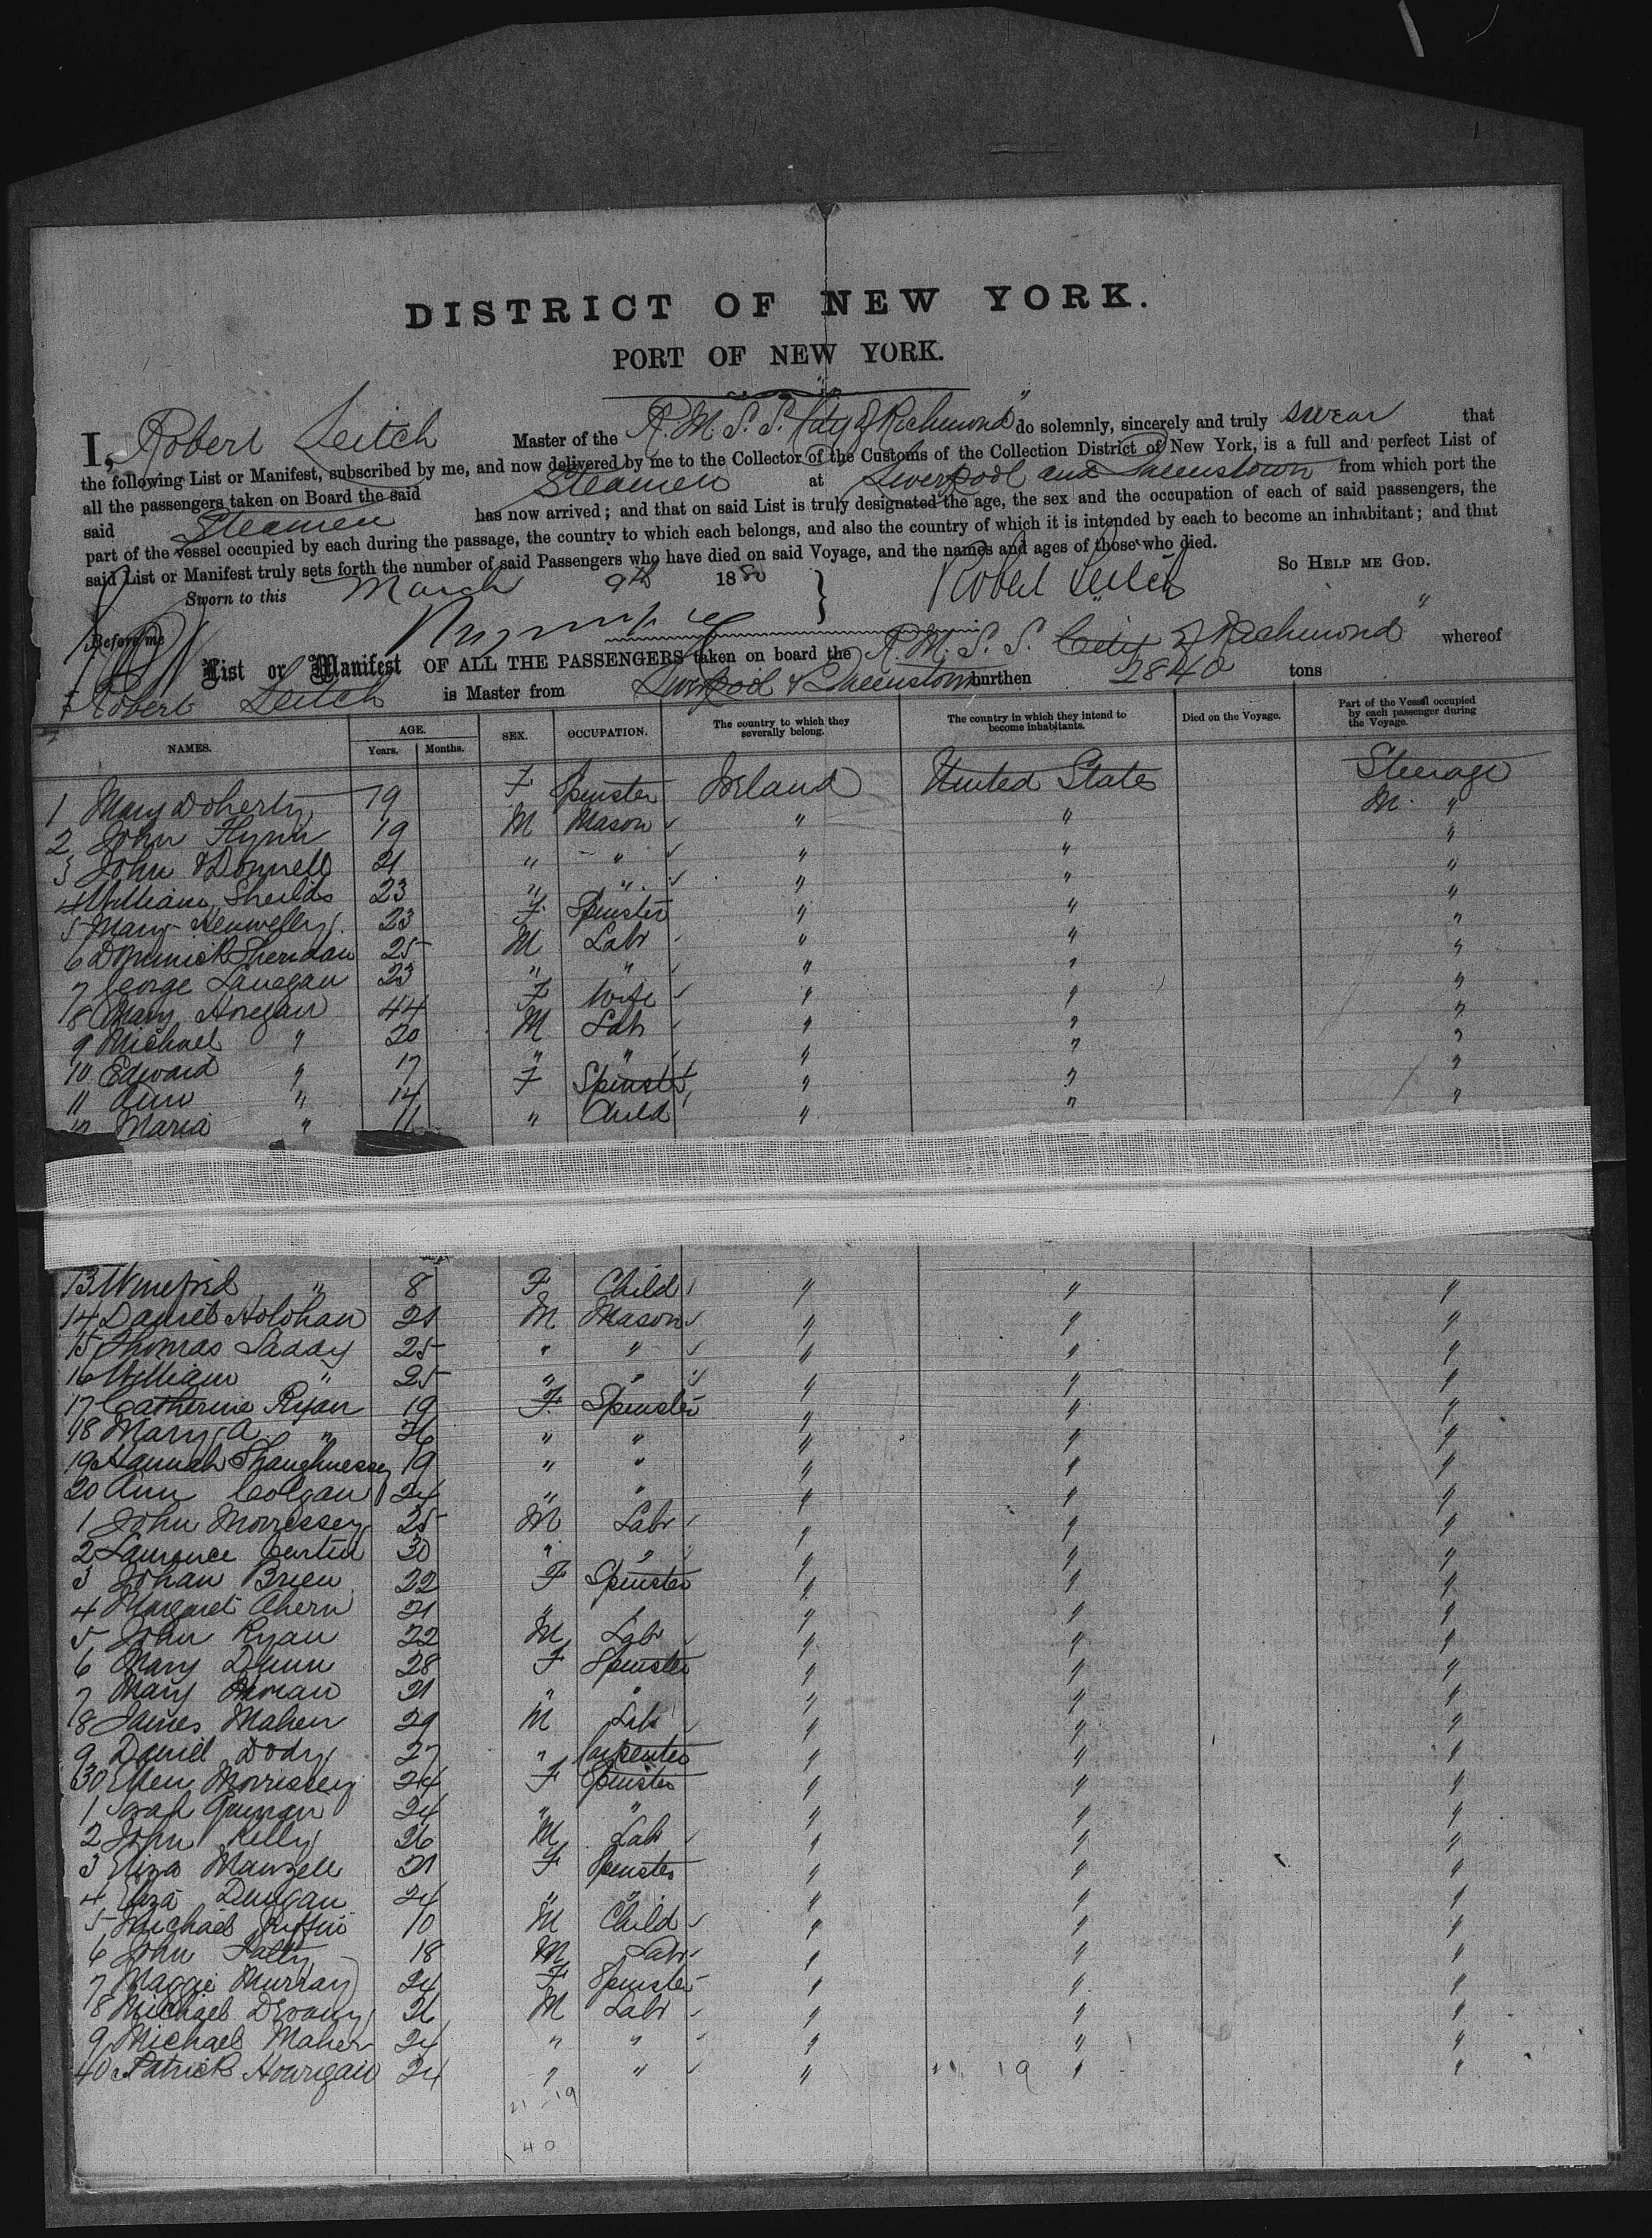 DISTRICT OF NEW YORK.
PORT OF NEW YORK.
I, Robert Leitch Master of the R.M.S.S. "City of Richmond" do solemnly, sincerely and truly swear that
the following List or Manifest, subscribed by me, and now delivered by me to the Collector of the Customs of the Collection District of New York, is a full and perfect List of
all the passengers taken on Board the said Steamer at Liverpool and Queenstown from which port the
said Steamer has now arrived; and that on said List is truly designated the age, the sex and the occupation of each of said passengers, the
part of the vessel occupied by each during the passage, the country to which each belongs, and also the country of which it is intended by each to become an inhabitant; and that
said List or Manifest truly sets forth the number of said Passengers who have died on said Voyage, and the names and ages of those who died.
So HELP ME GOD.
Sworn to this March 9th 1880 } Robert Leitch
Before me
List or Manifest OF ALL THE PASSENGERS taken on board the R.M.S.S. City of Richmond" whereof
Robert Leitch is Master from Liverpool & Queenstown burthen 2840 tons
NAMES. AGE. Years. Months. SEX. OCCUPATION. The country to which they severally belong. The country in which they intend to become inhabitants. Died on the Voyage. Part of the Vessel occupied by each passenger during the Voyage.
1 Mary Doherty 19 F Spinster Ireland United States Steerage
2 John Flynn 19 M Mason " " M. "
3 John O'Donnell 21 " " " " "
4 William Sheilds 23 " " " " "
5 Mary 23 F Spinster " " "
6 Dominick Sheridan 25 M Labr " " "
7 George Lanegan 23 " " " " "
8 Mary Horgan 44 F Wife " " "
9 Michael " 20 M Labr " " "
10 Edward " 17 " " " " "
11 Ann " 14 F Spinster " " "
12 Maria " 11 " Child " " "
13 Winefrid " 8 F Child " " "
14 Daniel Holohan 21 M Mason " " "
15 Thomas Laddy 25 " " " " "
16 William " 25 " " " " "
17 Catherine Ryan 19 F Spinster " " "
18 Mary A " 26 " " " " "
19 Hannah Shaughnessy 19 " " " " "
20 Ann Colgan 24 " " " " "
1 John Morressey 25 M Labr " " "
2 Laurence Curtin 30 " " " " "
3 Johan Brien 22 F Spinster " " "
4 Margaret Ahern 21 " " " " "
5 John Ryan 22 M Labr " " "
6 Mary Dunn 28 F Spinster " " "
7 Mary 21 " " " " "
8 James Maher 29 M Labr " " "
9 Daniel Dody 27 " Carpenter " " "
30 Ellen Morrissey 24 F Spinster " " "
1 24 " " " " "
2 John Kelly 26 M Labr " " "
3 Eliza Manzell 21 F Spinster " " "
4 Eliza Dungan 24 " " " " "
5 Michael Griffin 10 M Child " " "
6 John Latty 18 M Labr " " "
7 Maggie Murray 24 F Spinster " " "
8 Michael Devany 26 M Labr " " "
9 Michael Maher 24 " " " " "
40 Patrick Hourigan 24 " " " " "
21 19
21 - 19
40